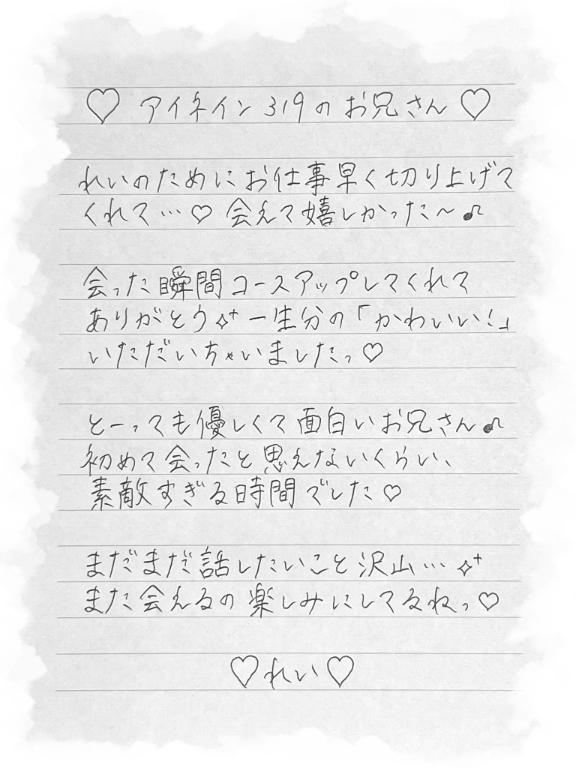 ♡ アイネイン 319 の お兄さん ♡
れいのために お仕事早く切り上げて
くれて…♡ 会えて嬉しかった〜♪
会った瞬間コースアップしてくれて
ありがとう✨ 一生分の「かわいい!」
いただいちゃいましたっ♡
とーっても優しくて面白いお兄さん♪
初めて会ったと思えないくらい、
素敵すぎる時間でした♡
まだまだ話したいこと沢山…✨
また会えるの楽しみにしてるねっ♡
♡れい♡